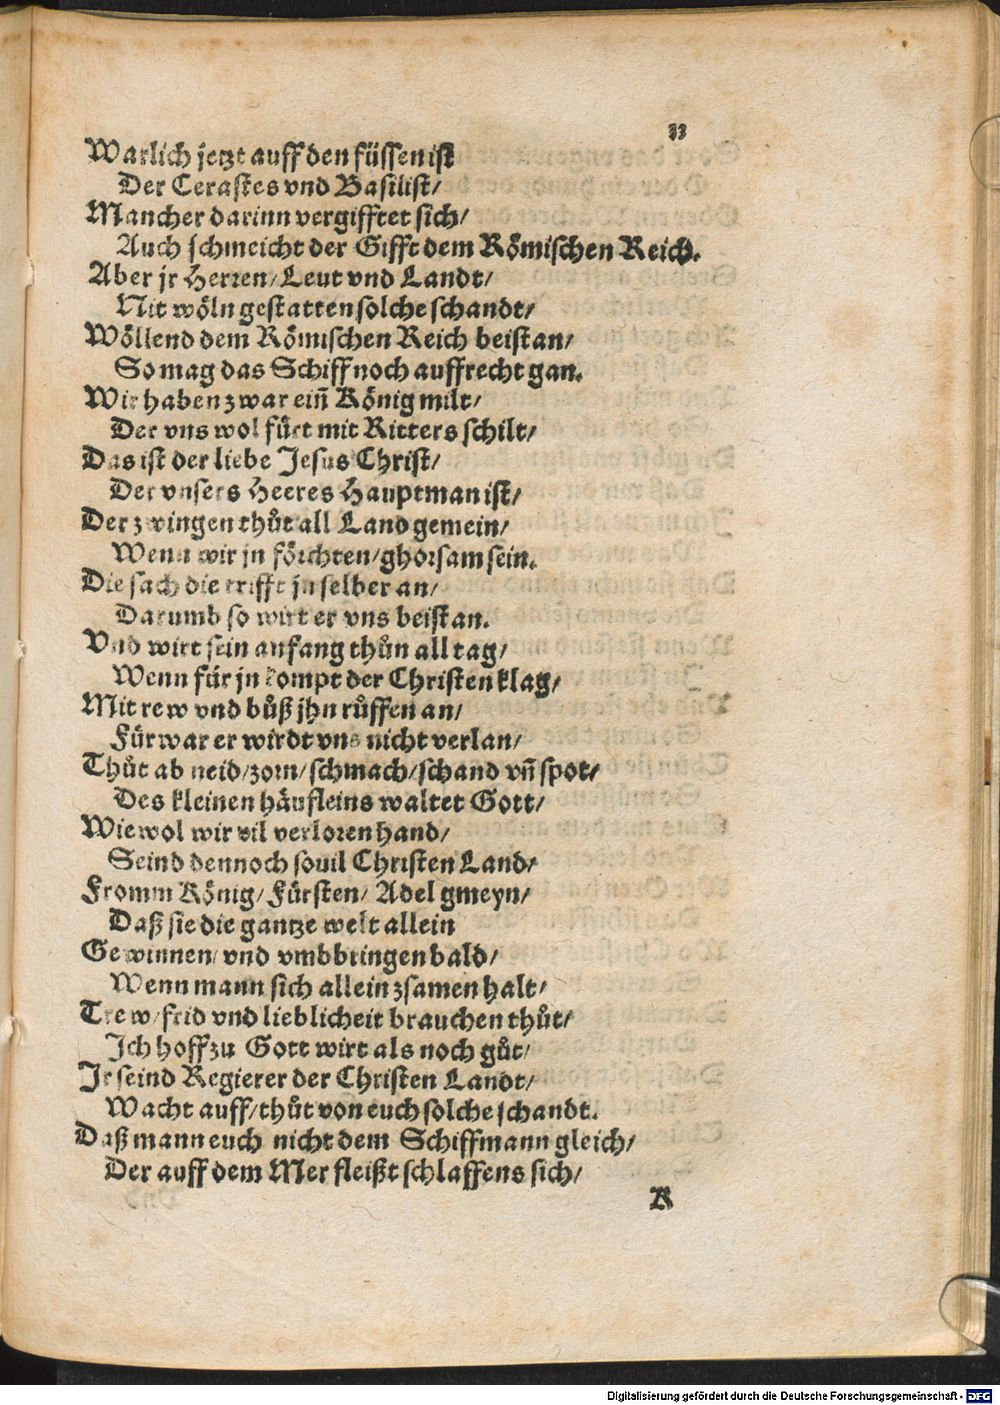 33
Warlich jetzt auff den füssen ist
Der Cerastes vnd Basilist/
Mancher darinn vergifftet sich/
Auch schmeicht der Gifft dem Römischen Reich.
Aber jr Herren/ Leut vnd Landt/
Nit wöln gestatten solche schandt/
Wöllend dem Römischen Reich beistan/
So mag das Schiff noch auffrecht gan.
Wir haben zwar ein̄ König milt/
Der vns wol fürt mit Ritters schilt/
Das ist der liebe Jesus Christ/
Der vnsers Heeres Hauptman ist/
Der zwingen thůt all Land gemein/
Wenn wir jn förchten/ ghorsam sein.
Die sach die trifft jn selber an/
Darumb so wirt er vns beistan.
Vnd wirt sein anfang thůn all tag/
Wenn für jn kompt der Christen klag/
Mit rew vnd bůß jhn růffen an/
Fürwar er wirdt vns nicht verlan/
Thůt ab neid/ zorn/ schmach/ schand vn̄ spot/
Des kleinen häufleins waltet Gott/
Wiewol wir vil verloren hand/
Seind dennoch souil Christen Land/
Fromm König/ Fürsten/ Adel gmeyn/
Daß sie die gantze welt allein
Gewinnen/ vnd vmbbringen bald/
Wenn mann sich allein zsamen halt/
Trew/ frid vnd lieblicheit brauchen thůt/
Ich hoff zu Gott wirt als noch gůt/
Jr seind Regierer der Christen Landt/
Wacht auff/ thůt von euch solche schandt.
Daß mann euch nicht dem Schiffmann gleich/
Der auff dem Mer fleißt schlaffens sich/
K
Digitalisierung gefördert durch die Deutsche Forschungsgemeinschaft - DFG